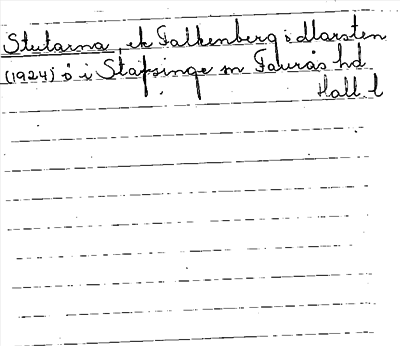 Stutarna, ek Falkenberg i Marsten
(1924) ö i Stafsinge sn Faurås hd
Hall l